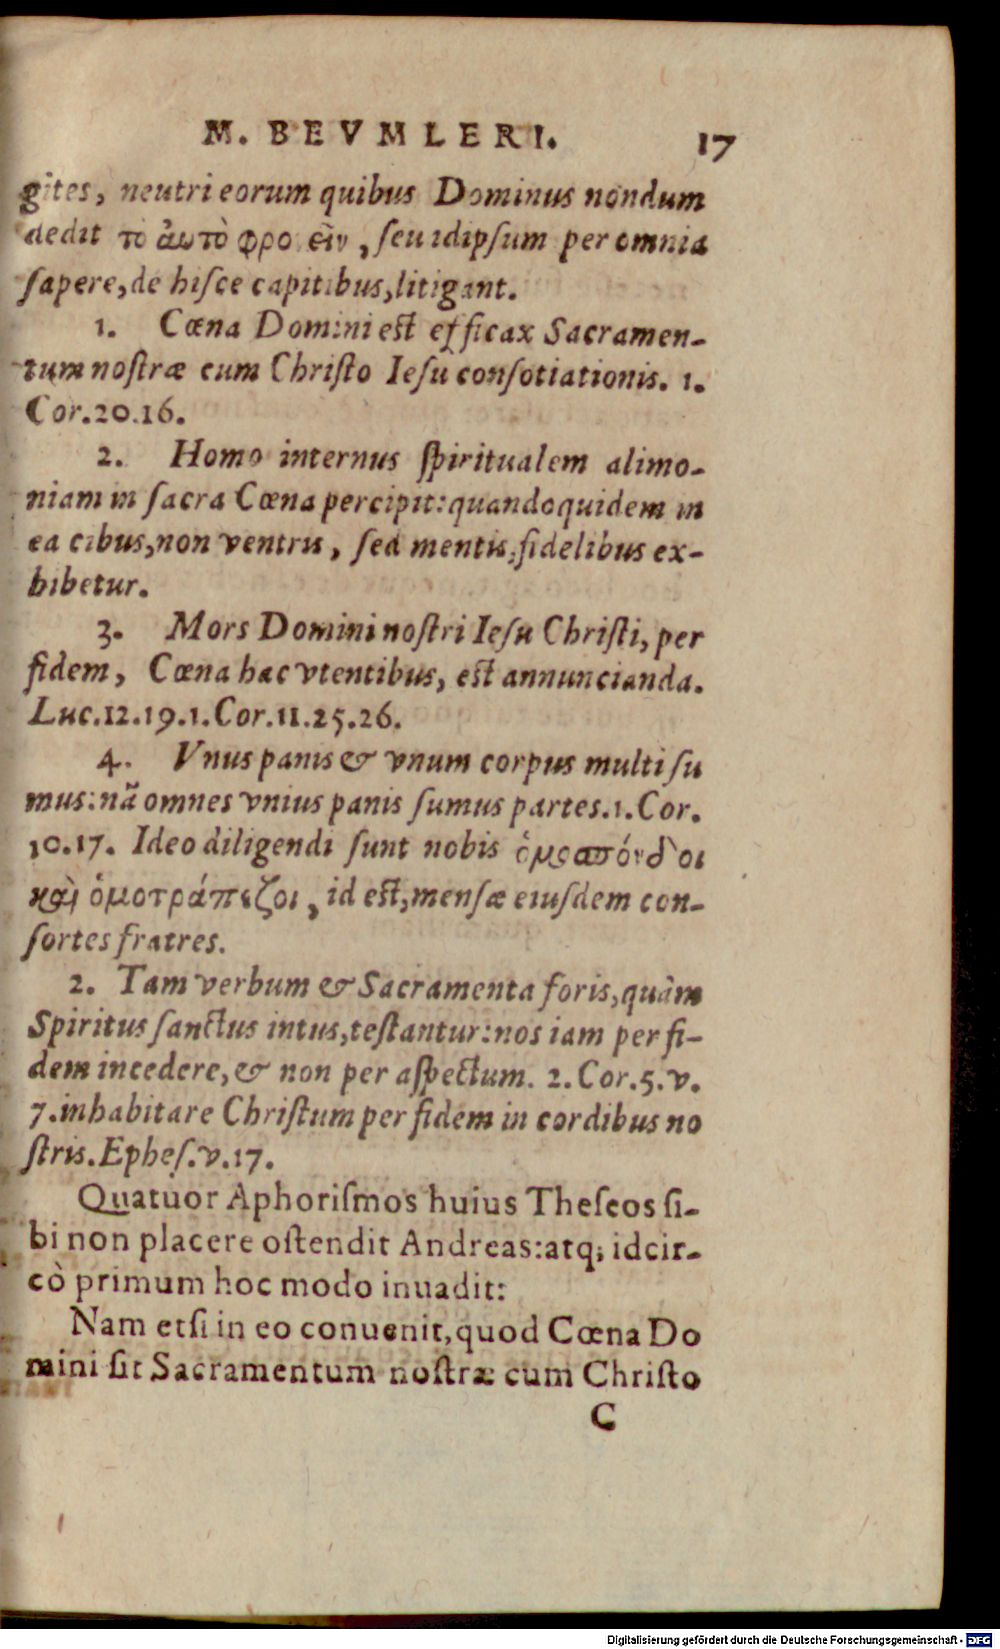 M. BEVMLERI. 17
gites, neutri eorum quibus Dominus nondum
dedit τὸ ἀυτὸ φρο εῖν, ſeu idipſum per omnia
ſapere, de hiſce capitibus, litigant.
1. Cœna Domini eſt efficax Sacramen-
tum noſtræ cum Chriſto Ieſu conſotiationis. 1.
Cor. 20.16.
2. Homo internus ſpiritualem alimo-
niam in ſacra Cœna percipit: quandoquidem in
ea cibus, non ventris, ſed mentis, fidelibus ex-
hibetur.
3. Mors Domini noſtri Ieſu Chriſti, per
fidem, Cœna hac vtentibus, eſt annuncianda.
Luc. 12.19.1. Cor. 11.25.26.
4. Vnus panis & vnum corpus multi ſu
mus: nã omnes vnius panis ſumus partes. 1. Cor.
10.17. Ideo diligendi ſunt nobis ὁμοσπόνδοι
καὶ ὁμοτράπεζοι, id eſt, menſæ eiuſdem con-
ſortes fratres.
2. Tam verbum & Sacramenta foris, quàm
Spiritus ſanctus intus, teſtantur: nos iam per fi-
dem incedere, & non per aſpectum. 2. Cor. 5. v.
7. inhabitare Chriſtum per fidem in cordibus no
ſtris. Epheſ. v. 17.
Quatuor Aphoriſmos huius Theſeos ſi-
bi non placere oſtendit Andreas: atq; idcir-
cò primum hoc modo inuadit:
Nam etſi in eo conuenit, quod Cœna Do
mini ſit Sacramentum noſtræ cum Chriſto
C
Digitalisierung gefördert durch die Deutsche Forschungsgemeinschaft - DFG